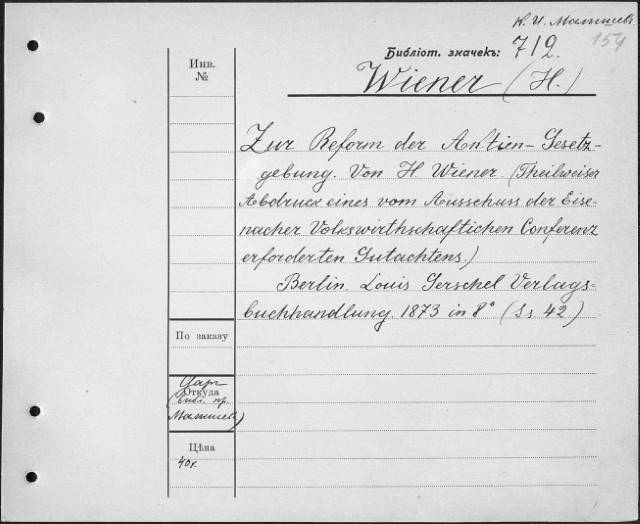 К. И. Малышевъ
154
Библіот. значекъ: 712.
Wiener (H.)
Инв.
№
Zur Reform der Aktien-Gesetz-
gebung. Von H. Wiener. (Theilweiser
Abdruck eines vom Ausschuss der Eise-
nacher Volkswirthschaftlichen Conferenz
erforderten Gutachtens.)
Berlin. Louis Gerschel Verlags-
buchhandlung. 1873 in 8° (Ss 42)
По заказу
Даръ
Откуда
(библ. пр.
Малышева)
Цѣна
40к.